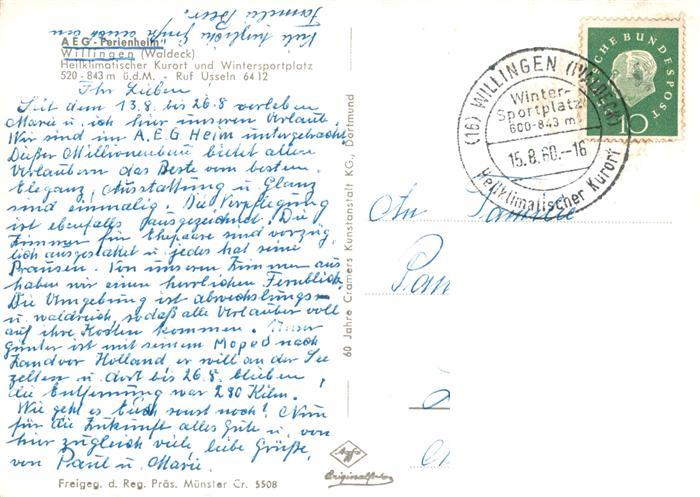 Viele herzliche Grüße auch an
Familie Beer.
AEG-Ferienheim
Willingen (Waldeck)
Heilklimatischer Kurort und Wintersportplatz
520-843 m ü.d.M. - Ruf Usseln 6412
Ihr Lieben!
Seit dem 13.8. bis 26.8 verleben
Marie u. ich hier unseren Urlaub.
Wir sind im A.E.G Heim untergebracht
Dießer Millionenbau bietet allen
Urlaubern das Beste vom besten.
Eleganz, Ausstattung u. Glanz
sind einmalig. Die Verpflegung
ist ebenfalls ausgezeichnet. Die
Zimmer für Ehepaare sind vorzüg,
lich ausgestattet u. jedes hat seine
Brausen. Von unserem Zimmer aus
haben wir einen herrlichen Fernblick.
Die Umgebung ist abwechslungs-
u. waldreich, sodaß alle Urlauber voll
auf ihre Kosten kommen. Unser
Günter ist mit seinem Moped nach
Zandvor Holland er will an der See
zelten u. dort bis 26.8. bleiben,
die Entfernung war 280 Kilm.
Wie geht es Euch sonst noch? Nun
für die Zukunft alles Gute u. von
hier zugleich viele liebe Grüße,
von Paul u. Marie.
Freigeg. d. Reg. Präs. Münster Cr. 5508
60 Jahre Cramers Kunstanstalt KG., Dortmund
Agfa
Originalfoto
(16) WILLINGEN (WALDECK)
Winter-
Sportplatz
600-843 m
15.8.60.-16
Heilklimatischer Kurort
DEUTSCHE BUNDESPOST
10
An Familie